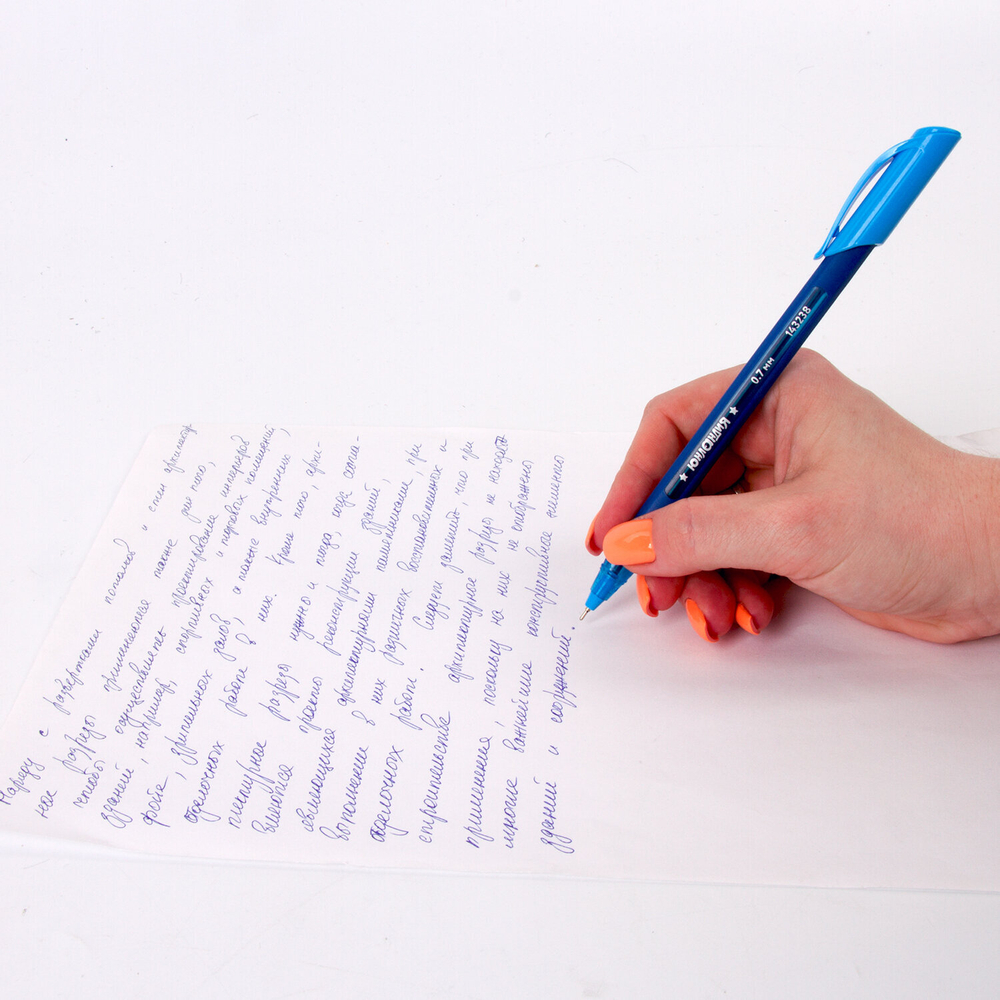 Наряду с развертками потолков и стен архитектур
ное разрезы применяются также для того,
чтобы осуществлять проектирование интерьеров
зданий, например, спортивных и торговых помещений,
фойе, зрительных залов, а также внутренних
отделочных работ в них. Кроме того, архи-
тектурное разреза нужны и тогда, когда соста-
вляются проекты реконструкции зданий,
являющихся архитектурными памятниками, при
выполнении в них различных восстановительных и
отделочных работ. Следует заметить, что при
строительстве архитектурное разрезы не находят
применения, поскольку на них не отображены
многие важнейшие конструктивные элементы
зданий и сооружений.
ЮНЛАНДИЯ 0.7 мм 143238